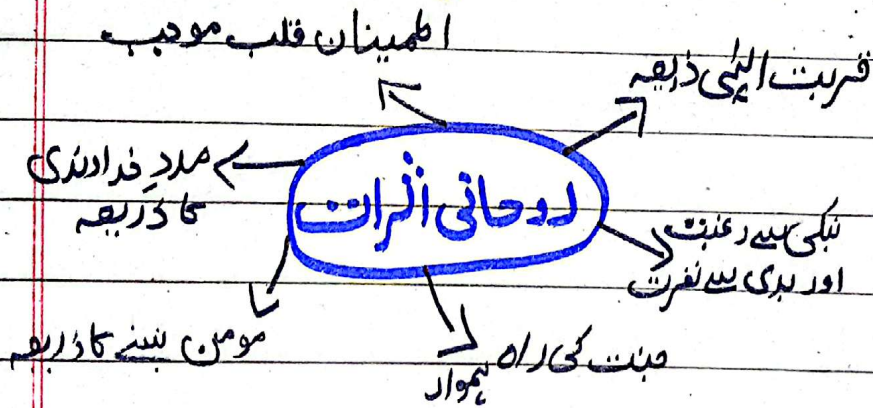 اطمینان قلب موجب
قربت الہٰی ذریعہ
مددِ خداوندی
کا ذریعہ
روحانی اثرات
نیکی سے رغبت
اور بدی سے نفرت
مومن بننے کا ذریعہ
جنت کی راہ ہموار